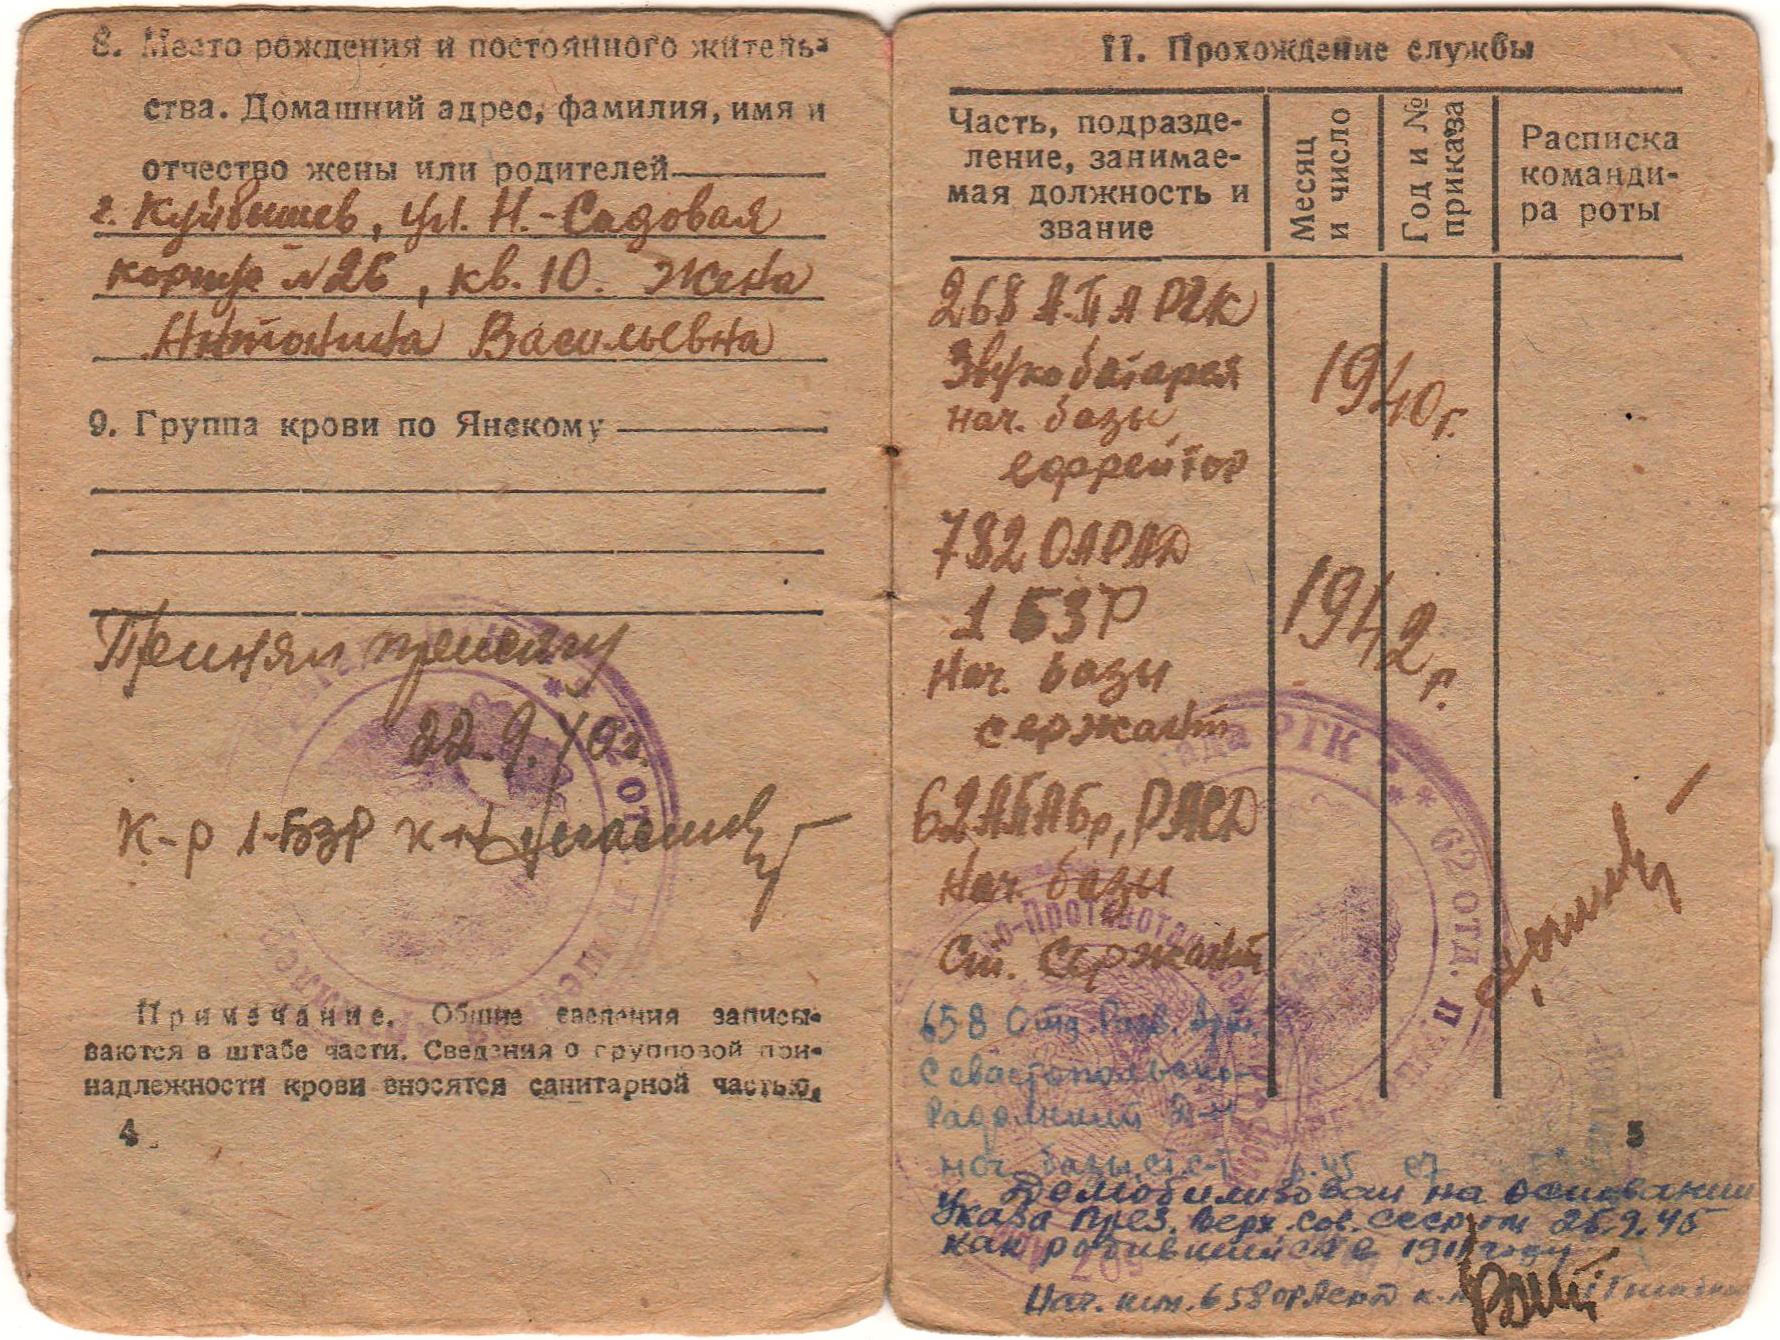 8. Место рождения и постоянного житель-
ства. Домашний адрес, фамилия, имя и
отчество жены или родителей
г. Куйбышев, ул. Н.-Садовая
корпус №26, кв. 10. Жена
Антонина Васильевна
9. Группа крови по Янскому
Принял присягу
22.9.40г.
К-р 1-БЗР к-н
Примечание. Общие сведения записы-
ваются в штабе части. Сведения о групповой при-
надлежности крови вносятся санитарной частью.
4
II. Прохождение службы
Часть, подразде-
ление, занимае-
мая должность и
звание
Месяц
и число
Год и №
приказа
Расписка
команди-
ра роты
268 АПАРГК
Звукобатарея
нач. базы
ефрейтор
1940г.
782 ОАРАД
1 БЗР
Нач. базы
сержант
1942г.
62АПАБр, РАСД
Нач. базы
Ст. Сержант
РГК
62 ОТД. П
658 Отд. Разв. Арт.
Севастопольско-
Радомский Д-н
нач. базы ст. с-т
5
Демобилизован на основании
Указа През. Верх. Сов. СССР от 25.9.45
как родившийся в 1911 году
Нач. шт. 658